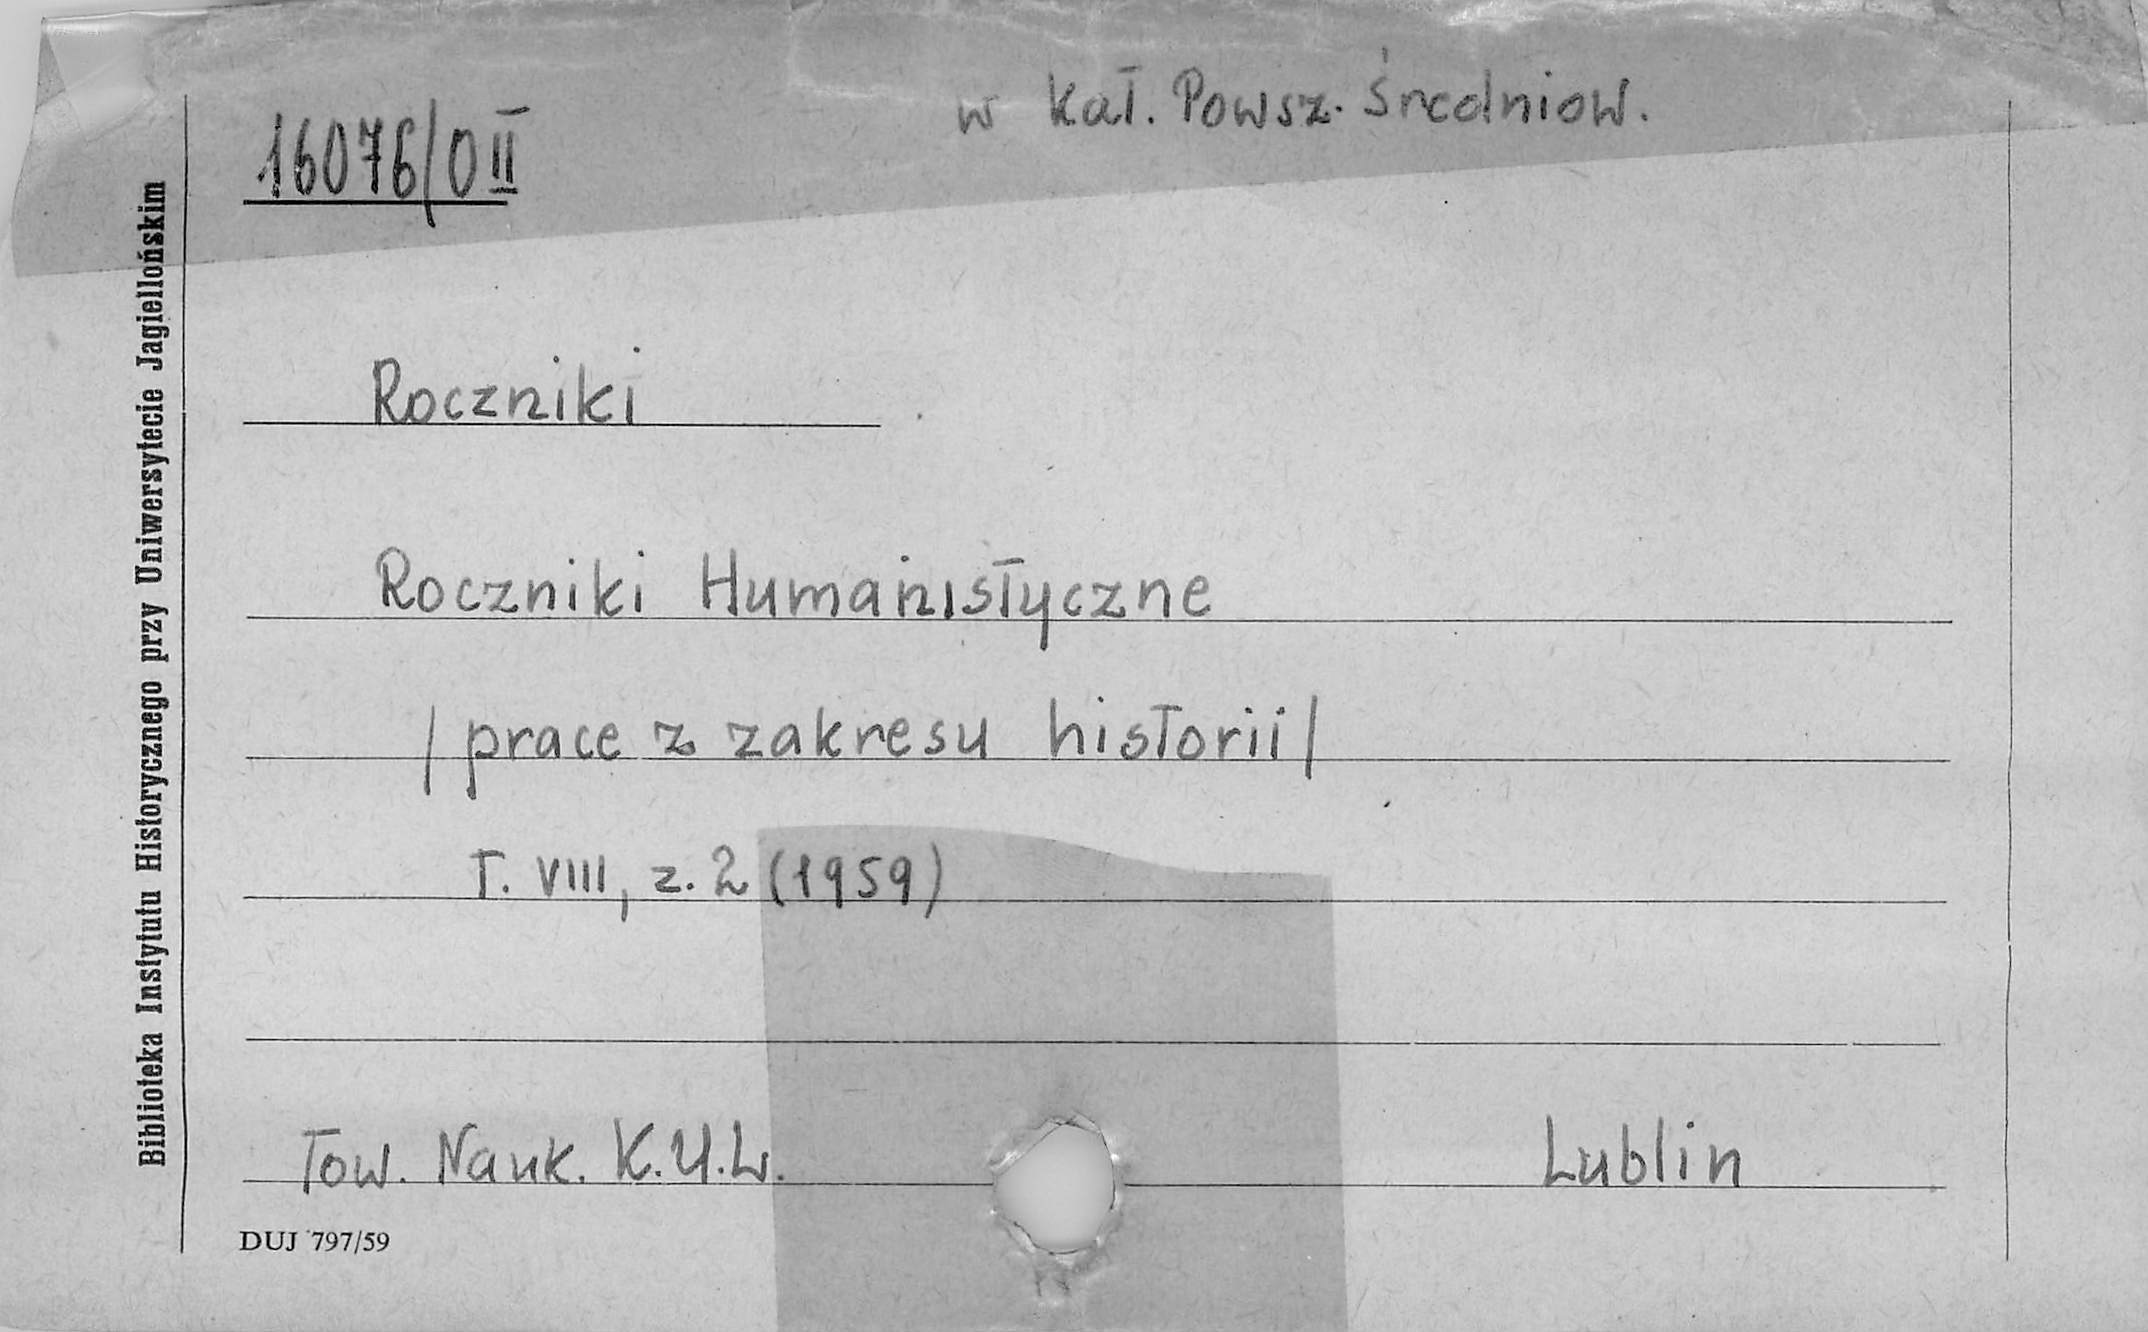 w kat. Powsz. Średniow.
16076/0 II
Roczniki
Roczniki Humanistyczne
/prace z zakresu historii/
T. VIII, z. 2 (1959)
Tow. Nauk. K.U.L. Lublin
DUJ 797/59
Biblioteka Instytutu Historycznego przy Uniwersytecie Jagiellońskim